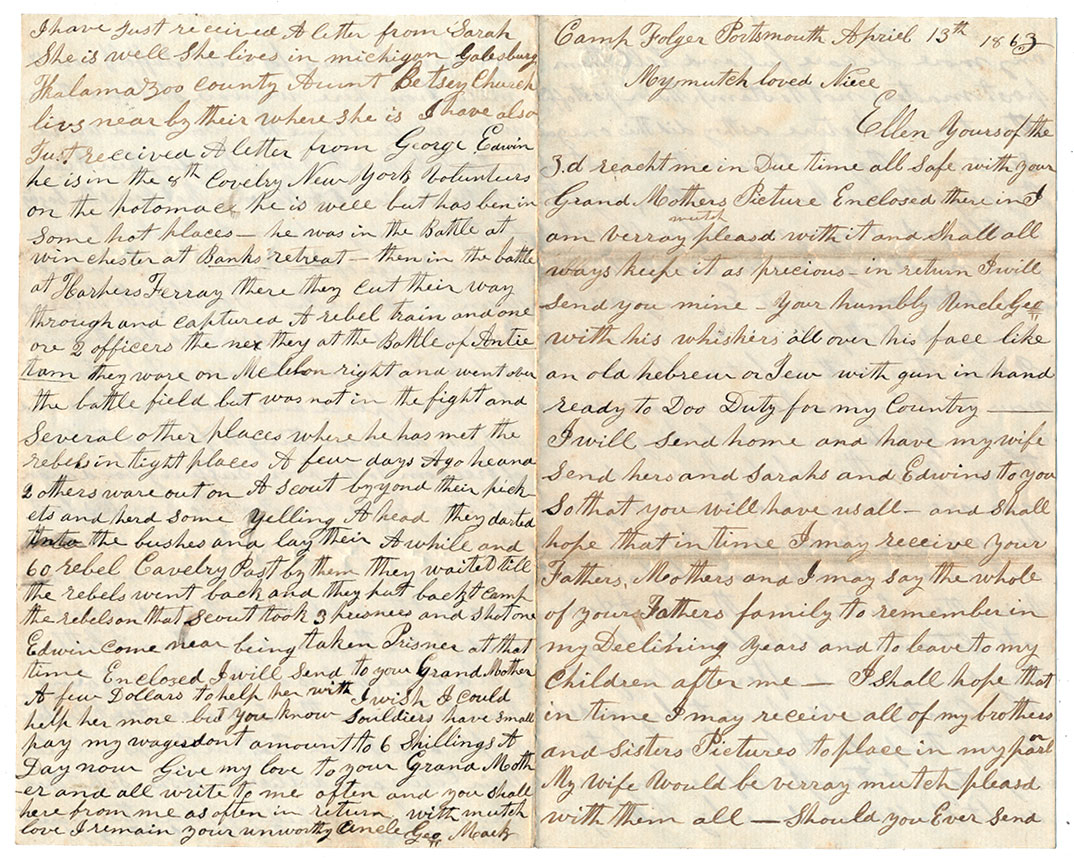 Camp Folger Portsmouth Apriel 13th 1863
My mutch loved Niece
Ellen Yours of the
3.d reacht me in Due time all safe with your
Grand Mothers Picture Enclosed there in I
am verray mutch pleasd with it and shall all
ways keepe it as precious - in return I will
send you mine - Your humbly Uncle Geo
with his whiskers all over his face like
an old hebrew or Jew with gun in hand
ready to Doo Duty for my Country ——
I will send home and have my wife
send hers and Sarahs and Edwins to you
So that you will have us all — and shall
hope that in time I may receive your
Fathers, Mothers and I may say the whole
of yours Fathers family to remember in
my Declining Years and to leave to my
Children after me — I shall hope that
in time I may receive all of my brothers
and Sisters Pictures to place in my parlor
My wife Would be verray mutch pleasd
with them all — Should you Ever send
I have Just received A letter from Sarah
She is well She lives in michigan Galesburg
Kalamazoo county Aunt Betsey Church
livs near by their where she is I have also
Just received A letter from George Edwin
he is in the 8th Covelry New York Volunteers
on the potomac he is well but has ben in
Some hot places — he was in the Battle at
winchester at Banks retreat — then in the battle
at Harpers Ferray there they cut their way
through and captured A rebel train and one
ore 2 officers the nex they at the Battle of Antie
tam they ware on Mclelon right and went over
the battle field but was not in the fight and
Several other places where he has met the
rebels in tight places A few days Ago he and
2 others ware out on A scout by yond their pick
ets and herd some Yelling A head they darted
Into the bushes and lay their A while and
60 rebel Cavelry Past by them they waited till
the rebels went back and they put back t camp
the rebels on that scout took 3 prisnees and shot one
Edwin come near being taken Prisner at that
time Enclosed I will send to your Grand Mother
A few Dollars to help her with I wish I could
help her more but you know Souldiers have small
pay my wages dont amount to 6 Shillings A
Day now Give my love to your Grand Moth
er and all write to me often and you shall
here from me as often in return, with mutch
love I remain your unworthy Uncle Geo Mack